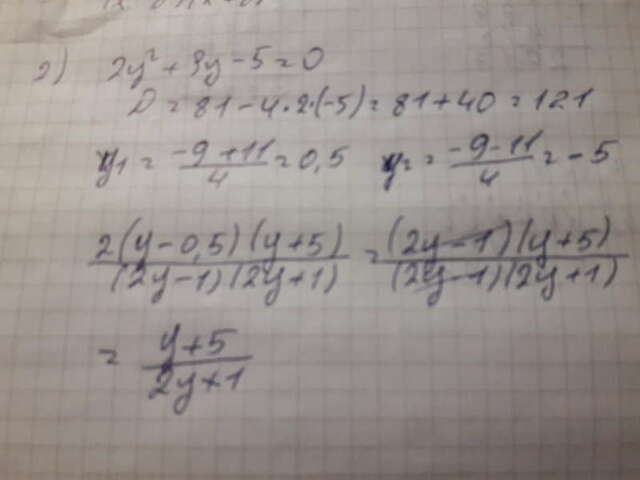 2) 2y² + 9y - 5 = 0
D = 81 - 4·2·(-5) = 81 + 40 = 121
y₁ = (-9 + 11)/4 = 0,5 y₂ = (-9 - 11)/4 = -5
2(y - 0,5)(y + 5)/((2y - 1)(2y + 1)) = (2y - 1)(y + 5)/((2y - 1)(2y + 1))
= (y + 5)/(2y + 1)